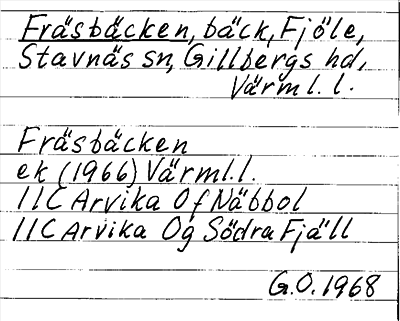 Fräsbäcken, bäck, Fjöle,
Stavnäs sn, Gillbergs hd,
Värml. l.
Fräsbäcken
ek (1966) Värml. l.
11C Arvika 0f Näbbol
11C Arvika 0g Södra Fjäll
G.O. 1968